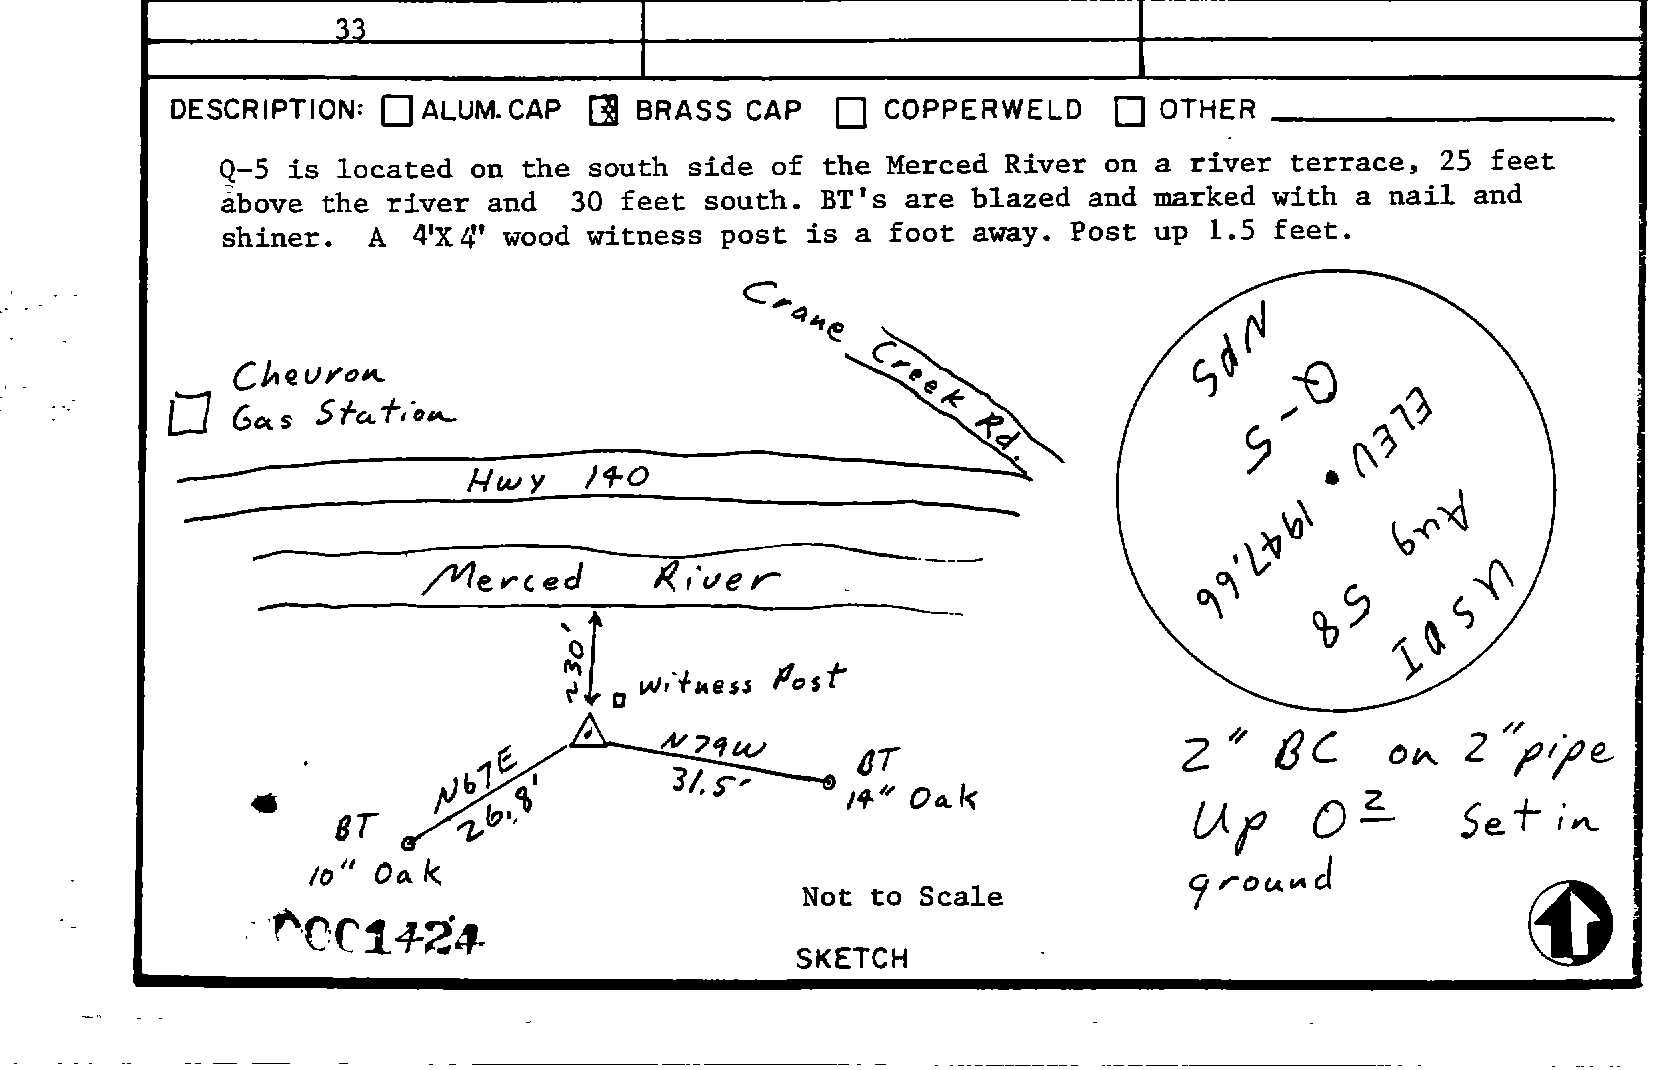 33
DESCRIPTION: ALUM. CAP BRASS CAP COPPERWELD OTHER
Q-5 is located on the south side of the Merced River on a river terrace, 25 feet
above the river and 30 feet south. BT's are blazed and marked with a nail and
shiner. A 4'X4" wood witness post is a foot away. Post up 1.5 feet.
Crane Creek Rd.
Chevron
Gas Station
Hwy 140
Merced River
~30'
Witness Post
N67E
26.8'
N79W
31.5'
BT
10" Oak
BT
14" Oak
NPS
Q-5
ELEV
1947.66
Aug
58
USDI
2" BC on 2" pipe
Up 0² Set in
ground
Not to Scale
SKETCH